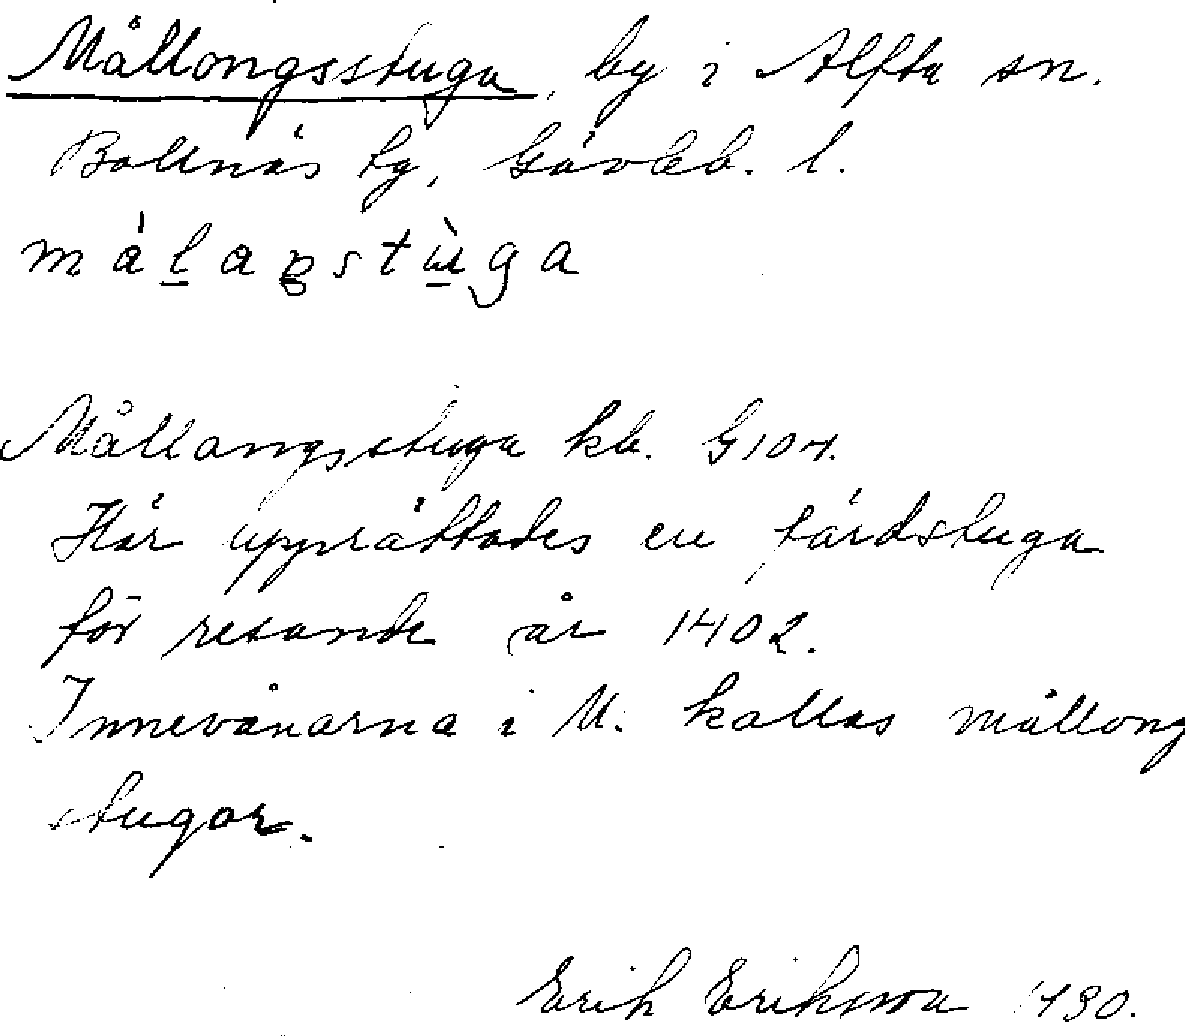 Mållongsstuga, by i Alfta sn.
Bollnäs tg, Gävleb. l.
målaŋstu̇ga
Mållangsstuga kb. G104.
Här upprättades en färdstuga
för resande år 1402.
Innevånarna i M. kallas mållong
stugor.
Erik Eriksson 1930.